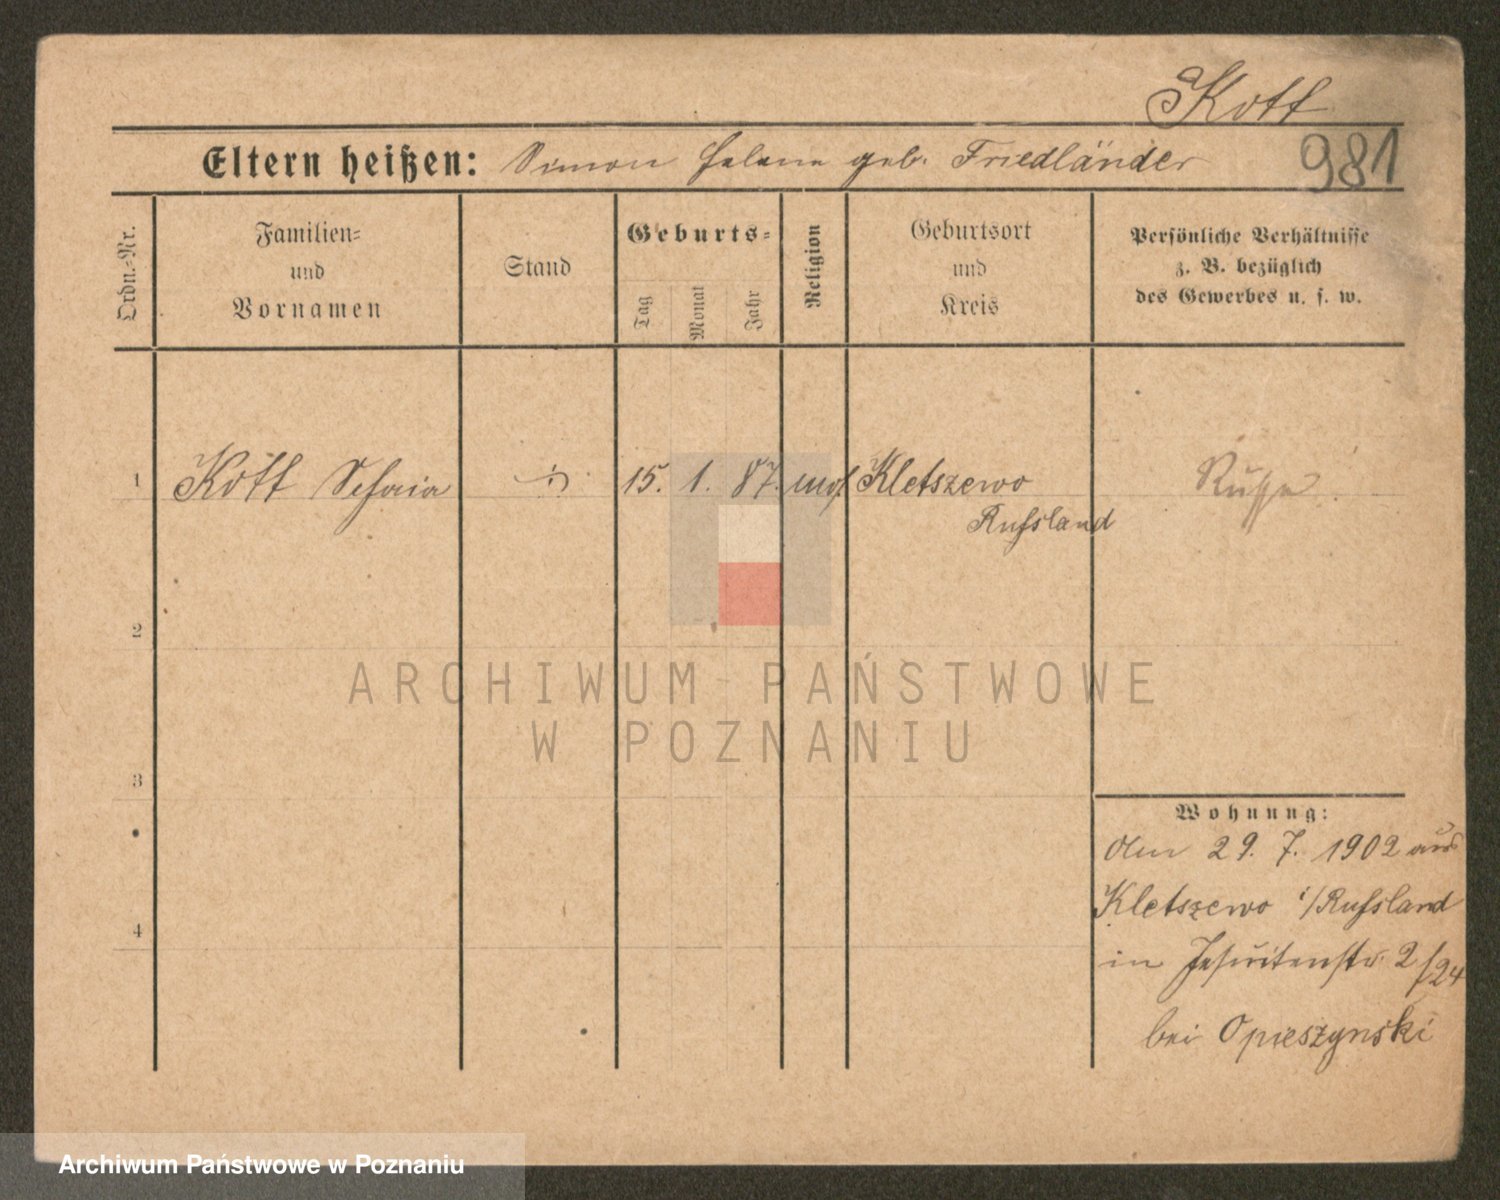 Kott
Eltern heißen: Simon Helene geb. Friedländer
981
Ordn.-Nr.
Familien-
und
Vornamen
Stand
Geburts-
Tag
Monat
Jahr
Religion
Geburtsort
und
Kreis
Persönliche Verhältnisse
z. B. bezüglich
des Gewerbes u. s. w.
1
Kott
15. 1. 87. mos.
Kletszewo
Russland
2
ARCHIWUM PAŃSTWOWE
W POZNANIU
3
4
Wohnung:
Am 29. 7. 1902 aus
Kletszewo i/Russland
in Jesuitenstr. 2/24
bei Opieszynski
Archiwum Państwowe w Poznaniu